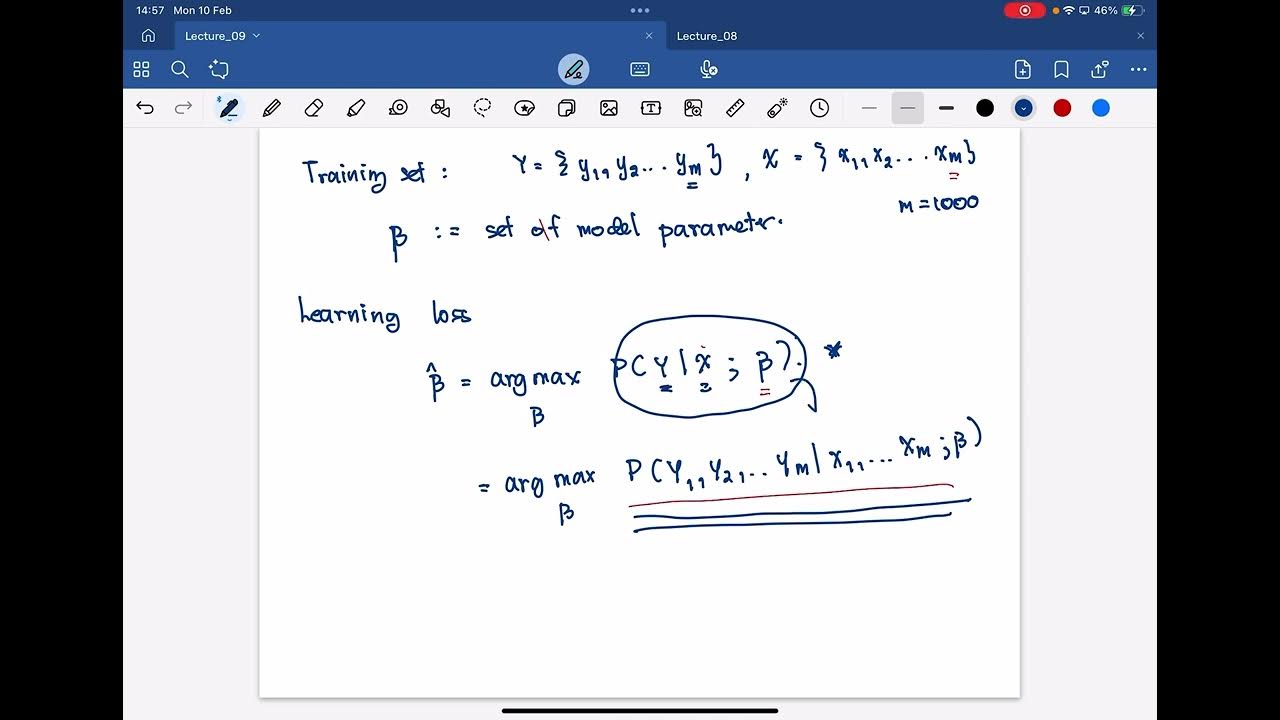 14:57 Mon 10 Feb 46%
Lecture_09 Lecture_08
Training set : Y = { y₁, y₂ ... yₘ } , X = { x₁, x₂ ... xₘ }
m = 1000
β := set of model parameter.
Learning loss
β̂ = arg max P(Y | X ; β). *
β
= arg max P(Y₁, Y₂, ... Yₘ | x₁, ... xₘ ; β)
β